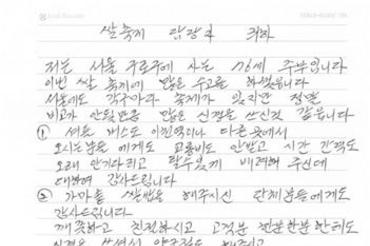 쌀축제 담당자 귀하
저는 서울 구로구에 사는 76세 주부입니다
이번 쌀 축제에 많은 수고를 하셨읍니다
서울에도 각구마다 축제가 있지만 정말
비교가 안될만큼 많은 신경을 쓰신것 같읍니다
① 셔틀 버스도 이천역이나 다른 곳에서
오시는분들 에게도 교통비도 안받고 시간 간격도
오래 안기다리고 탈수있게 배려해 주신데
대하여 감사드립니다
② 가마솥 쌀밥을 해주시신 단체분들에게도
감사드립니다
깨끗하고 친절하시고 고객분 한분한분한테도